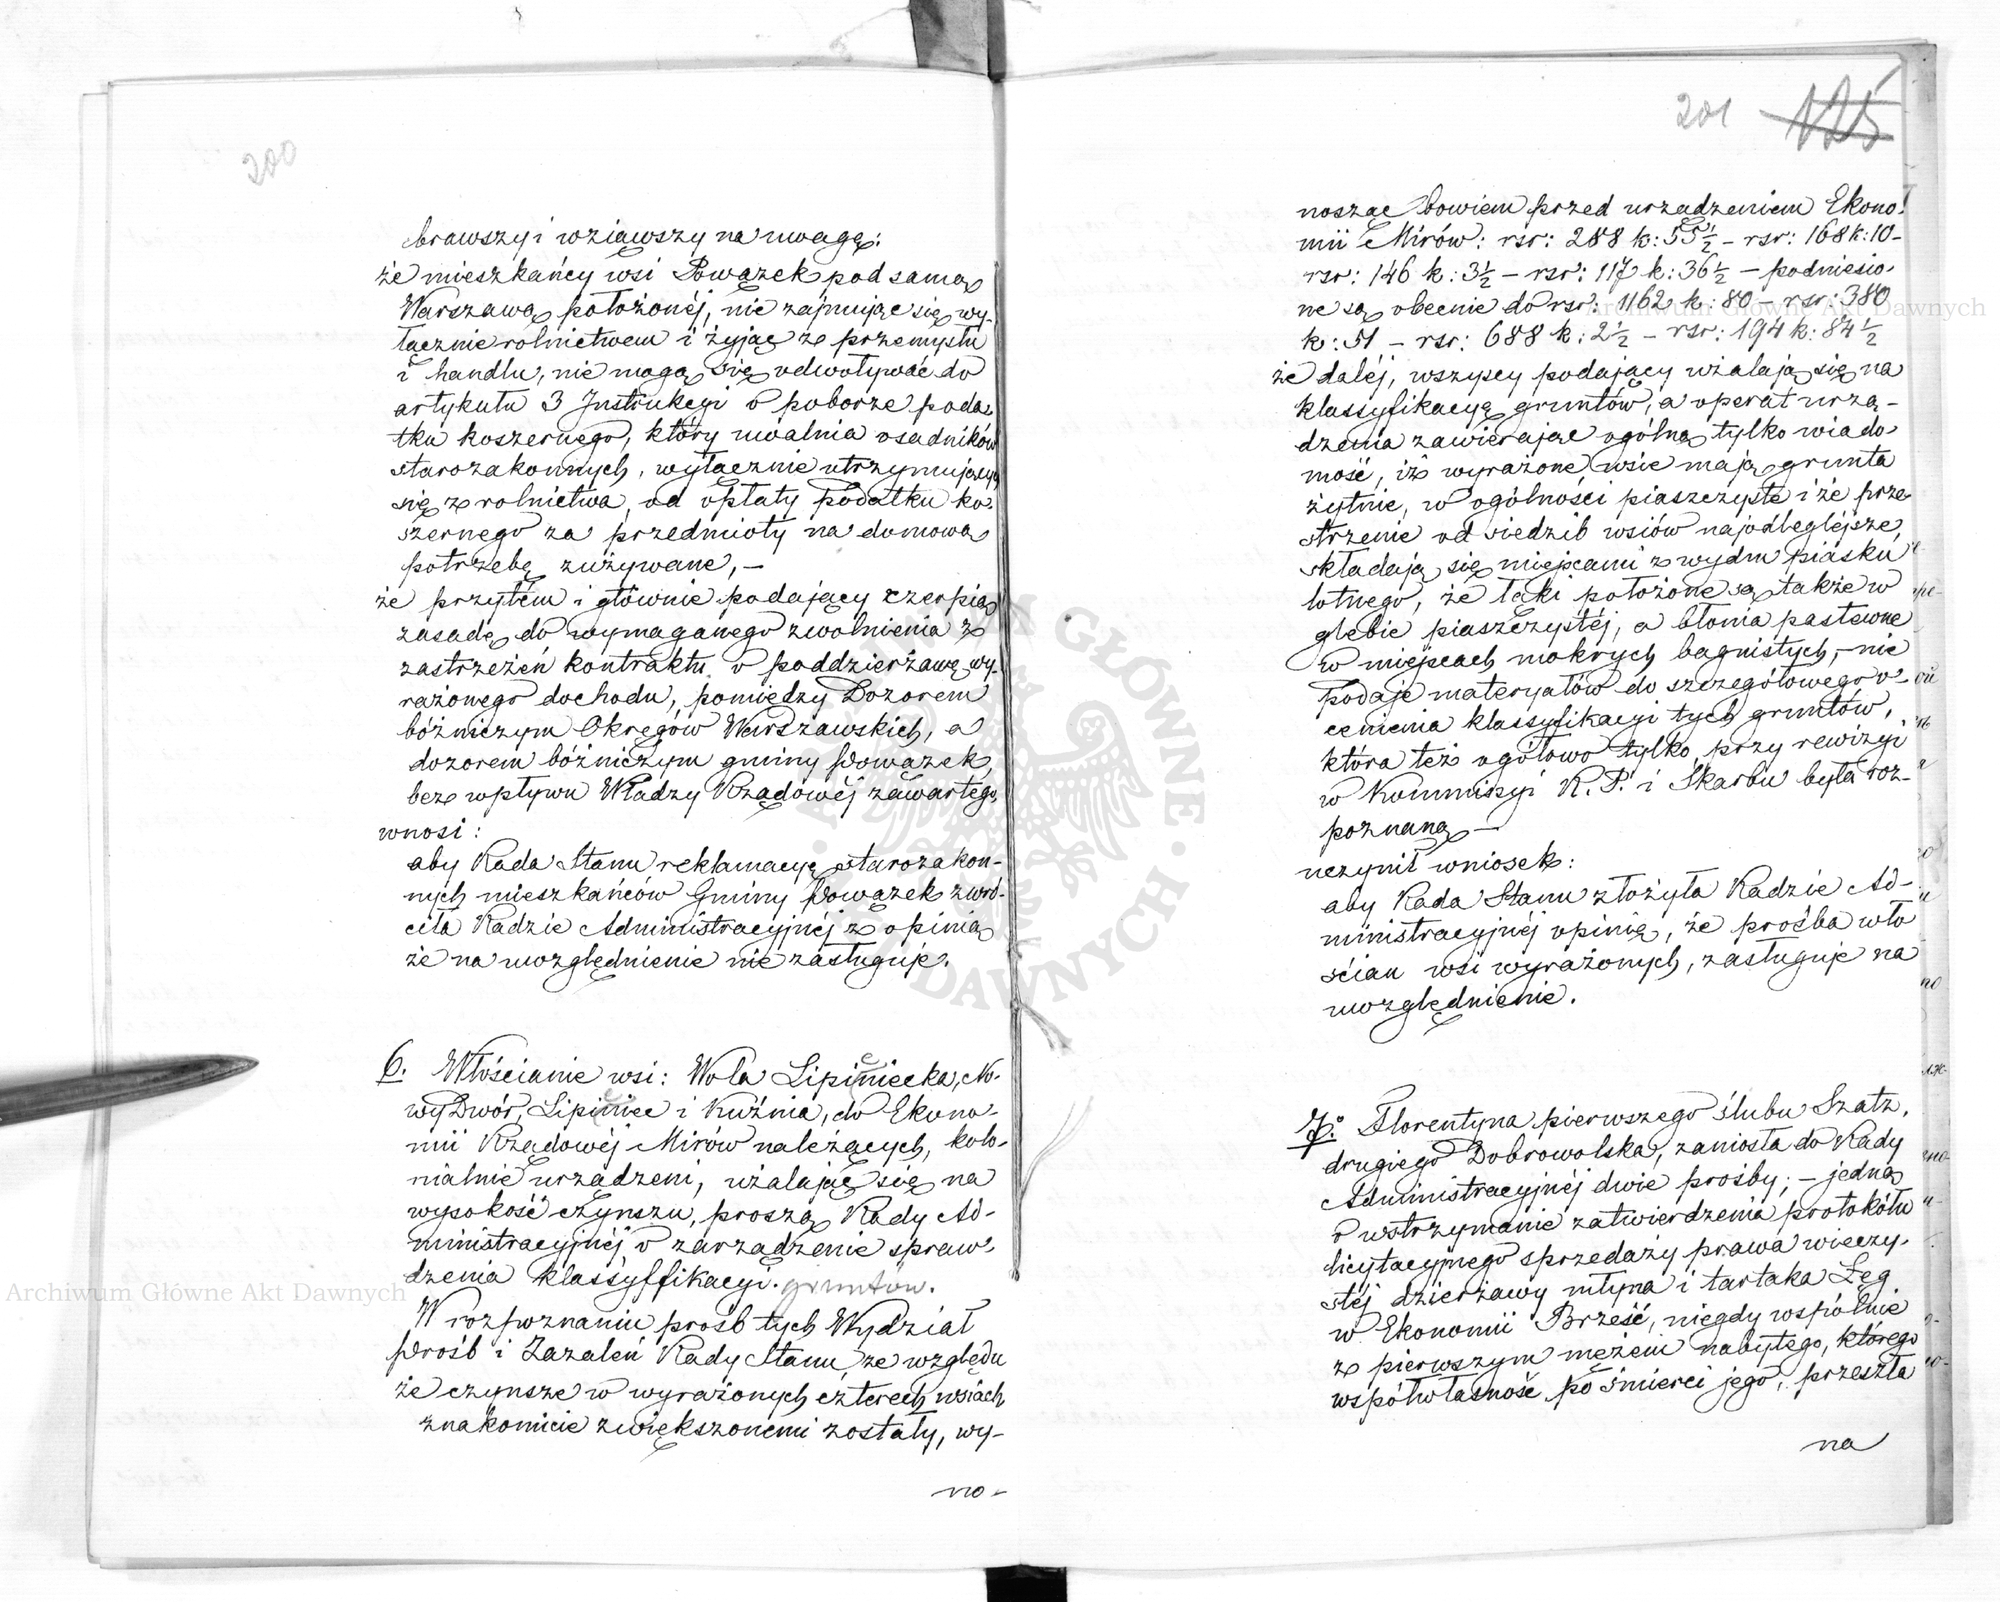 200
brawszy i wziąwszy na uwagę:
że mieszkańcy wsi Powązek pod samą
Warszawą położonéj, nie zajmując się wy-
łącznie rolnictwem i żyjąc z przemysłu
i handlu, nie mogą się odwoływać do
artykułu 3 Instrukcyi o poborze poda-
tku koszernego, który uwalnia osadników
starozakonnych, wyłącznie utrzymujących
się z rolnictwa, od opłaty podatku ko-
szernego za przedmioty na domową
potrzebę zużywane, —
że przytém i głównie podający czerpią
zasadę do wymaganego zwolnienia z
zastrzeżeń kontraktu o poddzierżawę wy-
rażonego dochodu, pomiędzy Dozorem
bóżniczym Okręgów Warszawskich, a
dozorem bóżniczym gminy Powązek,
bez wpływu Władzy Rządowéj zawartego,
wnosi:
aby Rada Stanu reklamacyę starozakon-
nych mieszkańców Gminy Powązek zwró-
ciła Radzie Administracyjnéj z opinią
że na uwzględnienie nie zasługuje.
6. Włościanie wsi: Wola Lipiniecka, No-
wy Dwór, Lipinice i Kuźnia, do Ekono-
mii Rządowéj Mirów należących, kolo-
nialnie urządzeni, użalając się na
wysokość czynszu, proszą Rady Ad-
ministracyjnéj o zarządzenie spraw-
dzenia klassyffikacyi gruntów.
W rozpoznaniu próśb tych Wydział
Próśb i Zażaleń Rady Stanu, ze względu
że czynsze w wyrażonych czterech wsiach
znakomicie zwiększonemi zostały, wy-
no-
201 125
nosząc bowiem przed urządzeniem Ekono-
mii Mirów: rsr: 288 k: 55½ – rsr: 168 k: 10 –
rsr: 146 k: 3½ – rsr: 117 k: 36½ – podniesio-
ne są obecnie do rsr: 1162 k: 80 – rsr: 380
k: 51 – rsr: 688 k: 2½ – rsr: 194 k: 84½
że daléj, wszyscy podający użalają się na
klassyfikacyę gruntów, a operat urzą-
dzenia zawierając ogólną tylko wiado-
mość, iż wyrażone wsie mają grunta
żytnie, w ogólności piaszczyste i że prze-
strzenie od siedzib wsiów najodleglejsze,
składają się miejscami z wydm piasku
lotnego, że łąki położone są także w
glebie piaszczystéj, a błonia pastewne
w miejscach mokrych bagnistych, – nie
podaje materyałów do szczegółowego o-
cenienia klassyfikacyi tych gruntów,
która też ogółowo tylko, przy rewizyi
w Kommissyi R. P. i Skarbu była roz-
poznaną —
uczynił wniosek:
aby Rada Stanu złożyła Radzie Ad-
ministracyjnéj opinię, że prośba wło
ścian wsi wyrażonych, zasługuje na
uwzględnienie.
7º Florentyna pierwszego ślubu Szatz,
drugiego Dobrowolska, zaniosła do Rady
Administracyjnéj dwie prośby; – jedną
o wstrzymanie zatwierdzenia protokółu
licytacyjnego sprzedaży prawa wieczy-
stéj dzierżawy młyna i tartaka Łęg
w Ekonomii Brześć, niegdy wspólnie
z pierwszym mężem nabytego, którego
współwłasność po śmierci jego, przeszła
na
Archiwum Główne Akt Dawnych
Archiwum Główne Akt Dawnych
GŁÓWNE
DAWNYCH